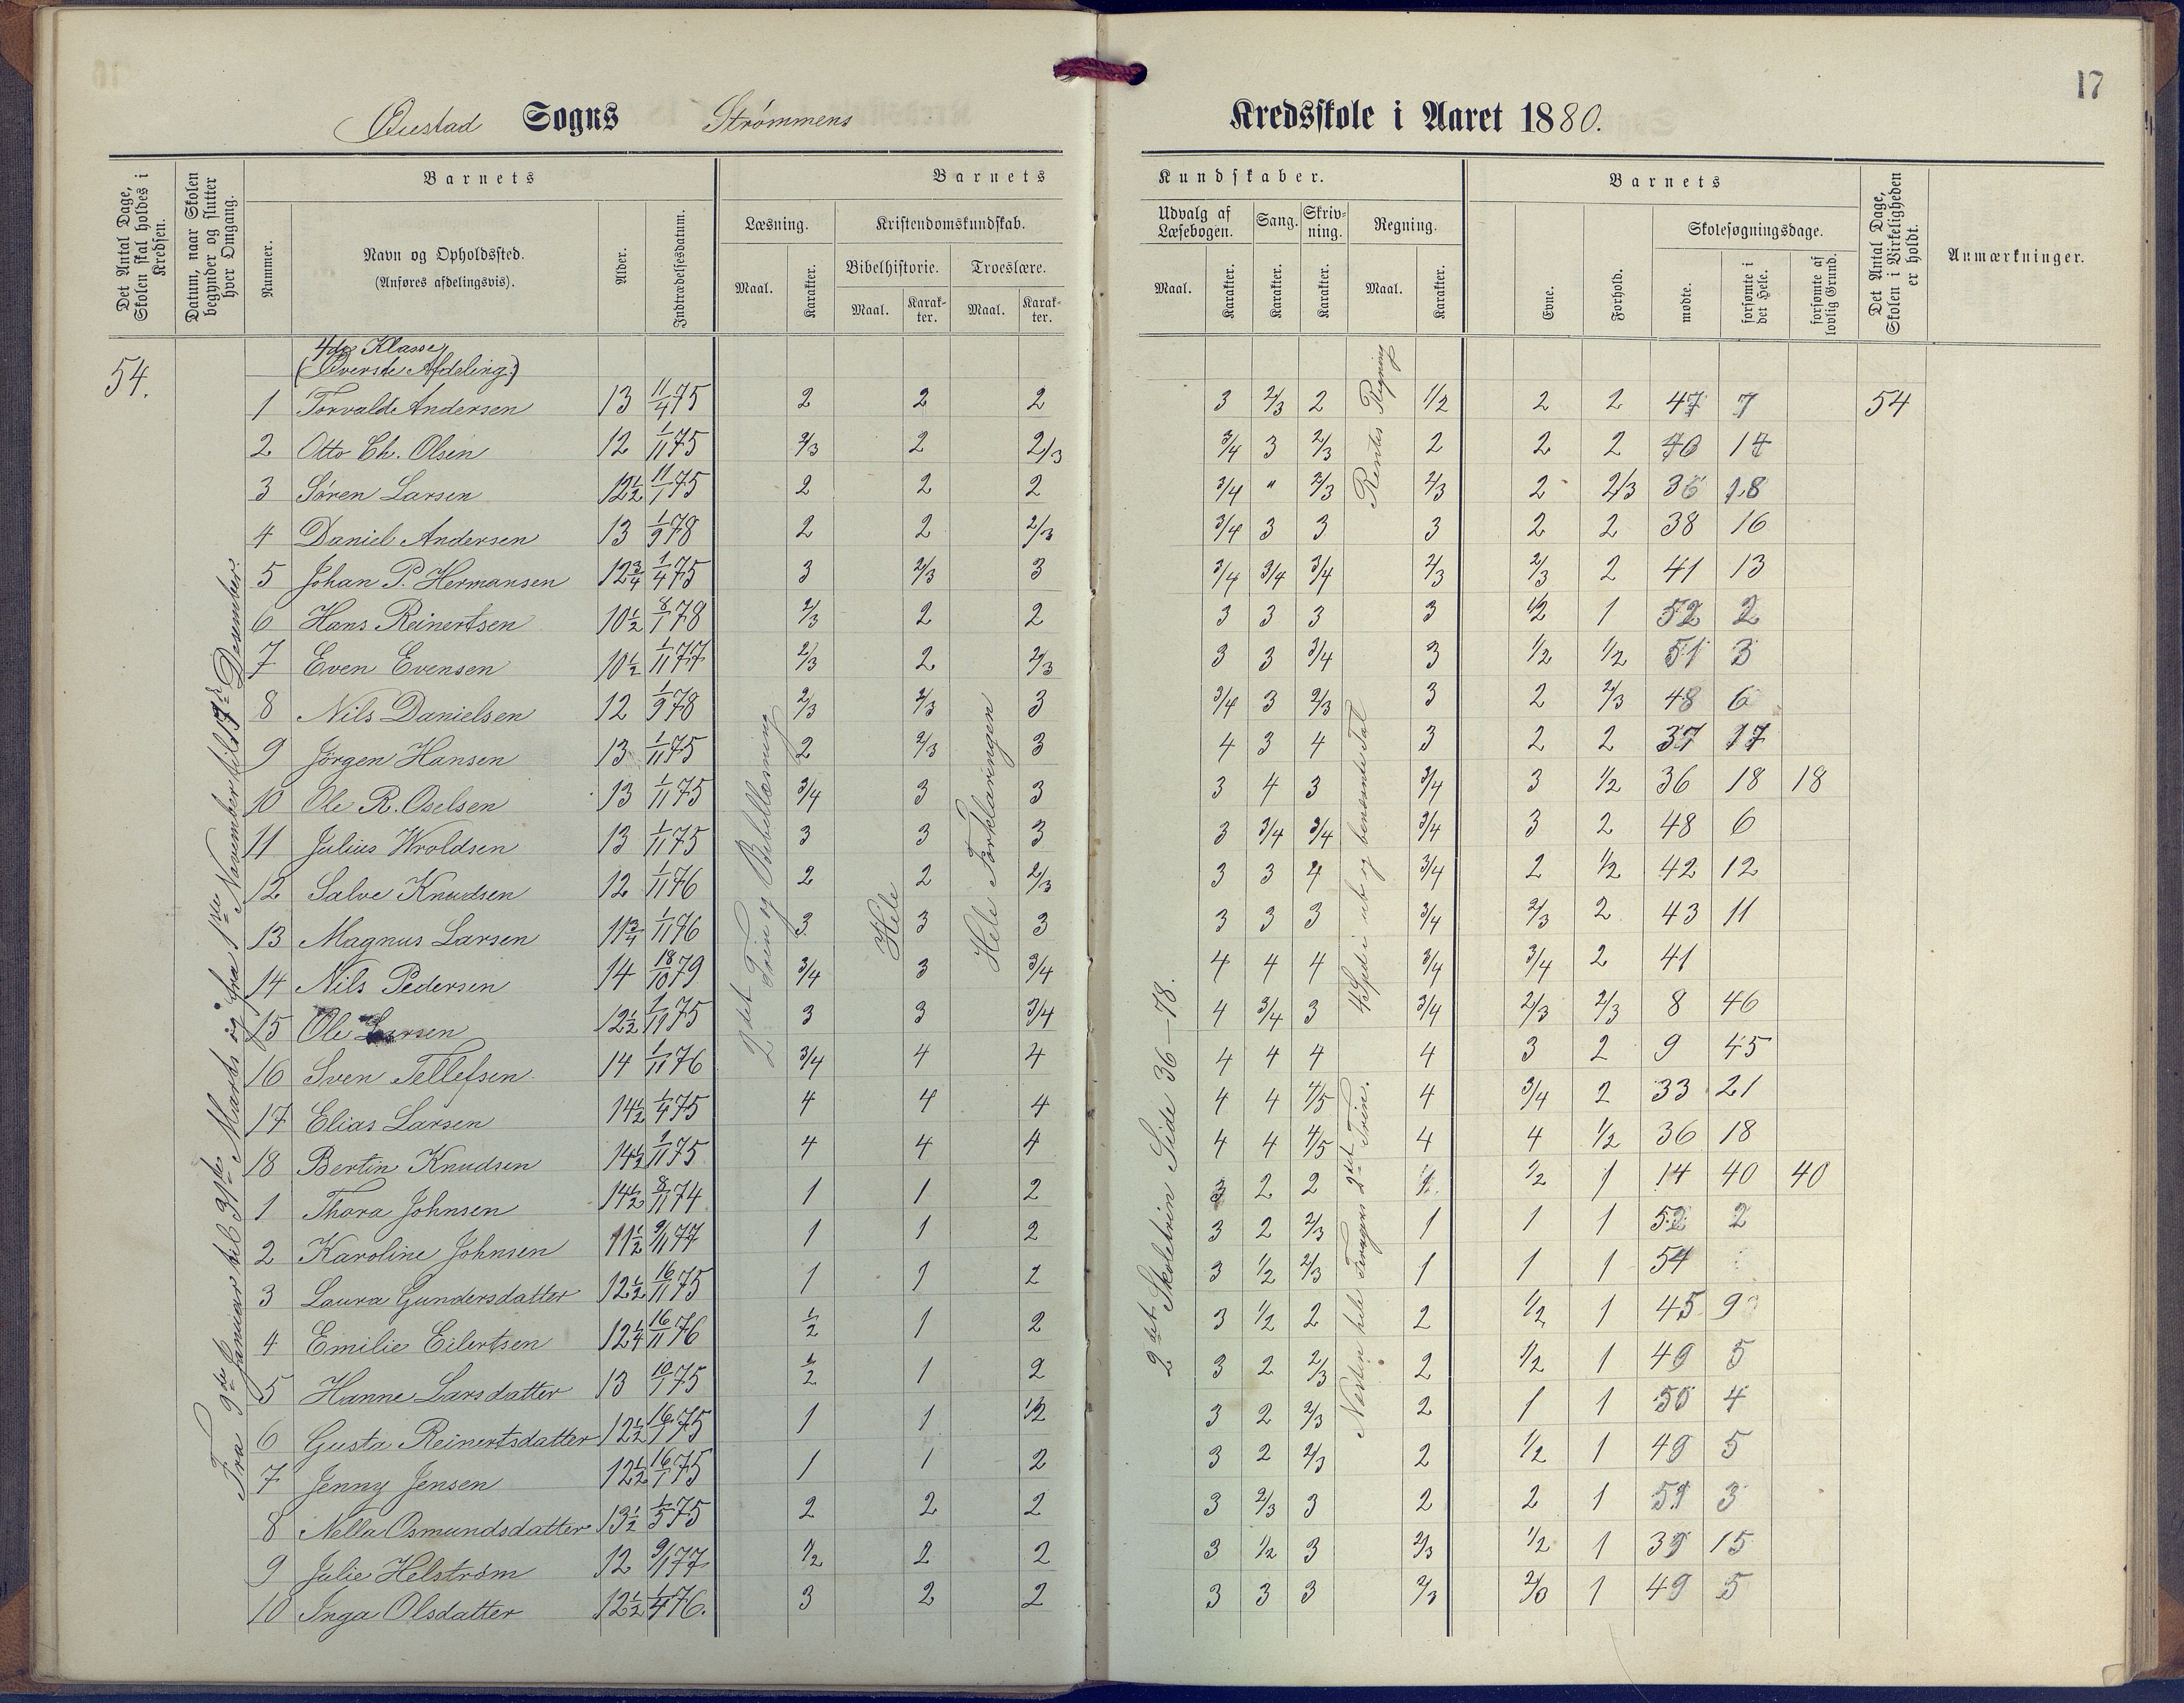 17
Øiestad Sogns Strømmens Kredsskole i Aaret 1880.
Det Antal Dage, Skolen skal holdes i Kredsen.
Datum, naar Skolen begynder og slutter hver Omgang.
Barnets
Nummer.
Navn og Opholdssted.
(Anføres afdelingsvis).
Alder.
Indtrædelsesdatum.
Barnets Kundskaber.
Læsning.
Maal.
Karakter.
Kristendomskundskab.
Bibelhistorie.
Maal.
Karakter.
Troeslære.
Maal.
Karakter.
Udvalg af Læsebogen.
Maal.
Karakter.
Sang.
Karakter.
Skrivning.
Karakter.
Regning.
Maal.
Karakter.
Barnets
Evne.
Forhold.
Skolesøgningsdage.
mødte.
forsømte i det Hele.
forsømte af lovlig Grund.
Det Antal Dage, Skolen i Virkeligheden er holdt.
Anmærkninger.
54.
Fra 9de Januar til 31te Marts og fra 1ste November til 17de Desember.
4de Klasse
(Øverste Afdeling.)
2det Trin og Bibellæsning
Hele
Hele Forklaringen
2det Skoletrin Side 36–78.
Rentes Regning
4 Spdi ub og benevnte Tal
Næsten hele Tvagens 2det Trin.
1 Torvald Andersen 13 11/4 75 2 2 2 3 2/3 2 1/2 2 2 47 7 54
2 Otto Ch. Olsen 12 1/11 75 2/3 2 2/3 3/4 3 2/3 2 2 2 40 14
3 Søren Larsen 12 1/2 11/1 75 2 2 2 3/4 " 2/3 2/3 2 2/3 36 18
4 Daniel Andersen 13 1/9 78 2 2 2/3 3/4 3 3 3 2 2 38 16
5 Johan P. Hermansen 12 3/4 1/4 75 3 2/3 3 3/4 3/4 3/4 2/3 2/3 2 41 13
6 Hans Reinertsen 10 1/2 8/1 78 2/3 2 2 3 3 3 3 1/2 1 52 2
7 Even Evensen 10 1/2 1/11 77 2/3 2 2/3 3 3 3/4 3 1/2 1/2 51 3
8 Nils Danielsen 12 1/9 78 2/3 2/3 3 3/4 3 2/3 3 2 2/3 48 6
9 Jörgen Hansen 13 1/11 75 2 2/3 3 4 3 4 3 2 2 37 17
10 Ole R. Oselsen 13 1/11 75 3/4 3 3 3 4 3 3/4 3 1/2 36 18 18
11 Julius Wroldsen 13 1/11 75 3 3 3 3 3/4 3/4 3/4 3 2 48 6
12 Salve Knudsen 12 1/11 76 2 2 2/3 3 3 4 3/4 2 1/2 42 12
13 Magnus Larsen 11 3/4 1/11 76 3 3 3 3 3 3 3/4 2/3 2 43 11
14 Nils Pedersen 14 18/10 79 3/4 3 3/4 4 4 4 3/4 3/4 2 41
15 Ole Larsen 12 1/2 1/11 75 3 3 3/4 4 3/4 3 3/4 2/3 2/3 8 46
16 Sven Tellefsen 14 1/11 76 3/4 4 4 4 4 4 4 3 2 9 45
17 Elias Larsen 14 1/2 1/4 75 4 4 4 4 4 4/5 4 3/4 2 33 21
18 Bertin Knudsen 14 1/2 1/11 75 4 4 4 4 4 4/5 4 4 1/2 36 18
1 Thora Johnsen 14 1/2 8/11 74 1 1 2 3 2 2 1. 1/2 1 14 40 40
2 Karoline Johnsen 11 1/2 9/11 77 1 1 2 3 2 2/3 1 1 1 52 2
3 Laura Gundersdatter 12 1/2 16/11 75 1 1 2 3 1/2 2/3 1 1 1 54
4 Emilie Eilertsen 12 1/4 16/11 76 1/2 1 2 3 1/2 2 2 1/2 1 45 9
5 Hanne Larsdatter 13 10/1 75 1/2 1 2 3 2 2/3 2 1/2 1 49 5
6 Gusta Reinertsdatter 12 1/2 16/1 75 1 1 1/2 3 2 2/3 2 1 1 50 4
7 Jenny Jensen 12 1/2 16/1 75 1 1 2 3 2 2/3 2 1/2 1 49 5
8 Nella Osmundsdatter 13 1/2 1/5 75 2 2 2 3 2/3 3 2 2 1 51 3
9 Julie Helström 12 9/1 77 1/2 2 2 3 1/2 3 2/3 1/2 1 39 15
10 Inga Olsdatter 12 1/2 1/4 76. 3 2 2 3 3 3 2/3 2/3 1 49 5